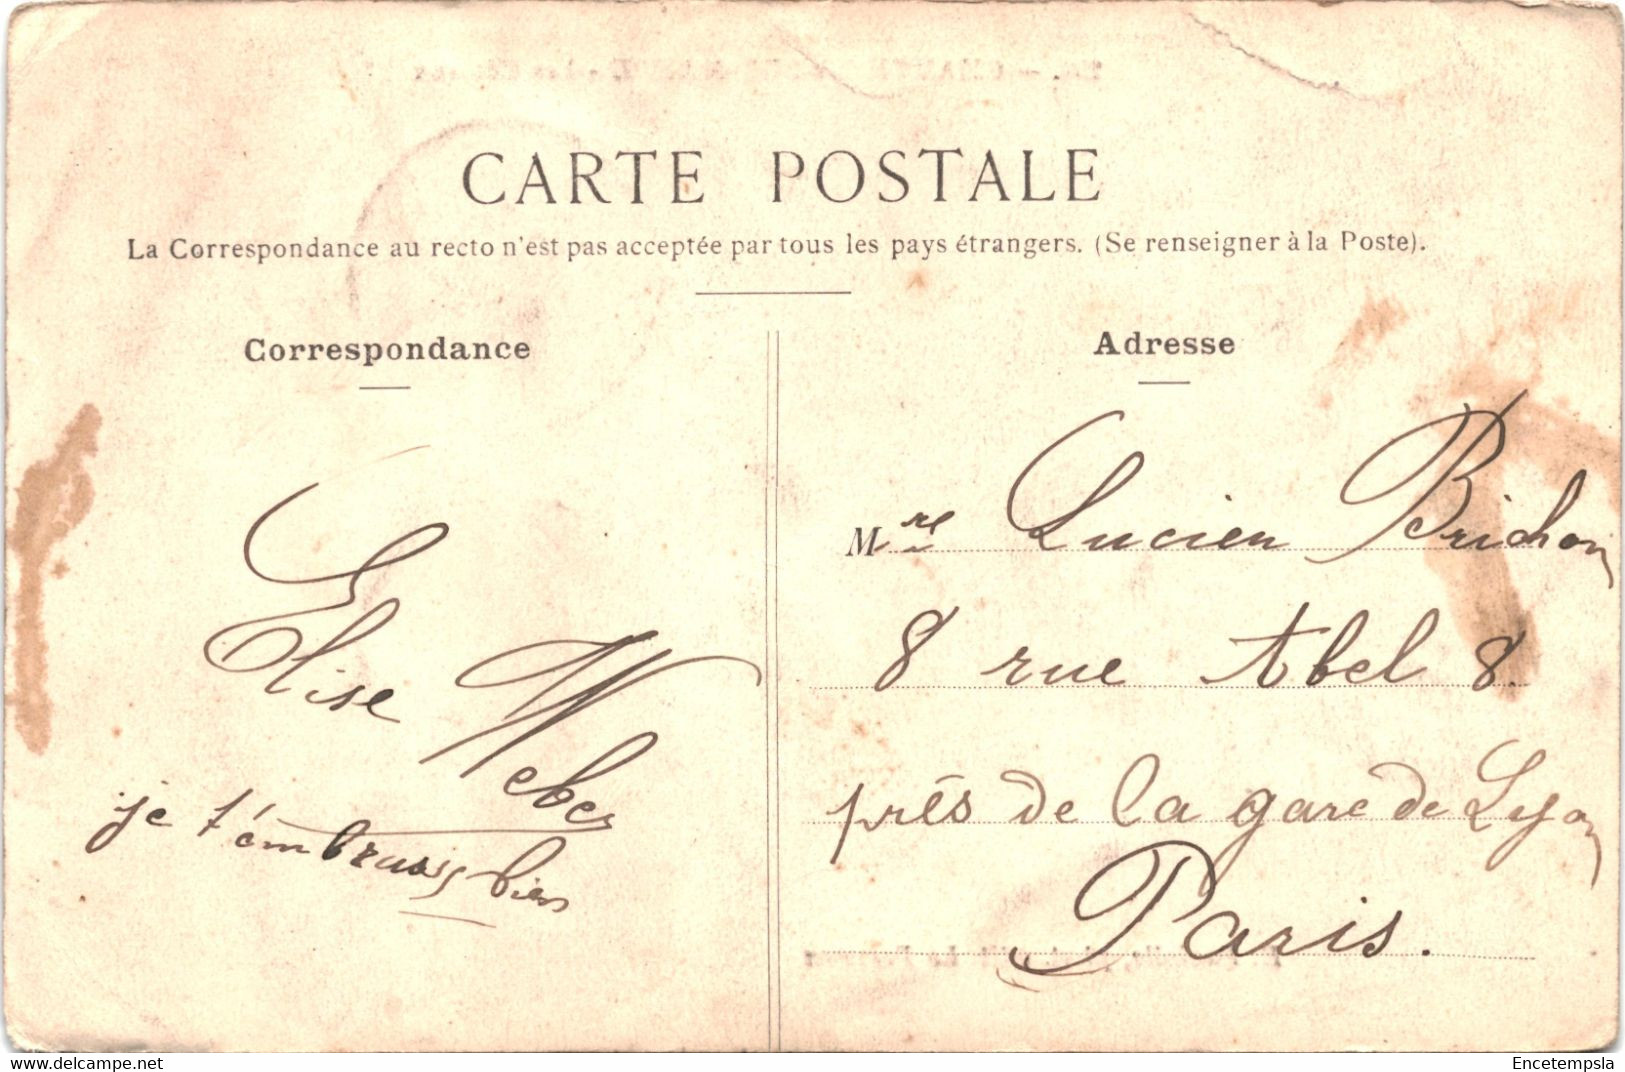 CARTE POSTALE
La Correspondance au recto n'est pas acceptée par tous les pays étrangers. (Se renseigner à la Poste).
Correspondance
Elise Weber
je t'embrass bien
Adresse
Mre Lucien Brichon
8 rue Abel 8.
près de la gare de Lyon
Paris.
www.delcampe.net
Encetempsla